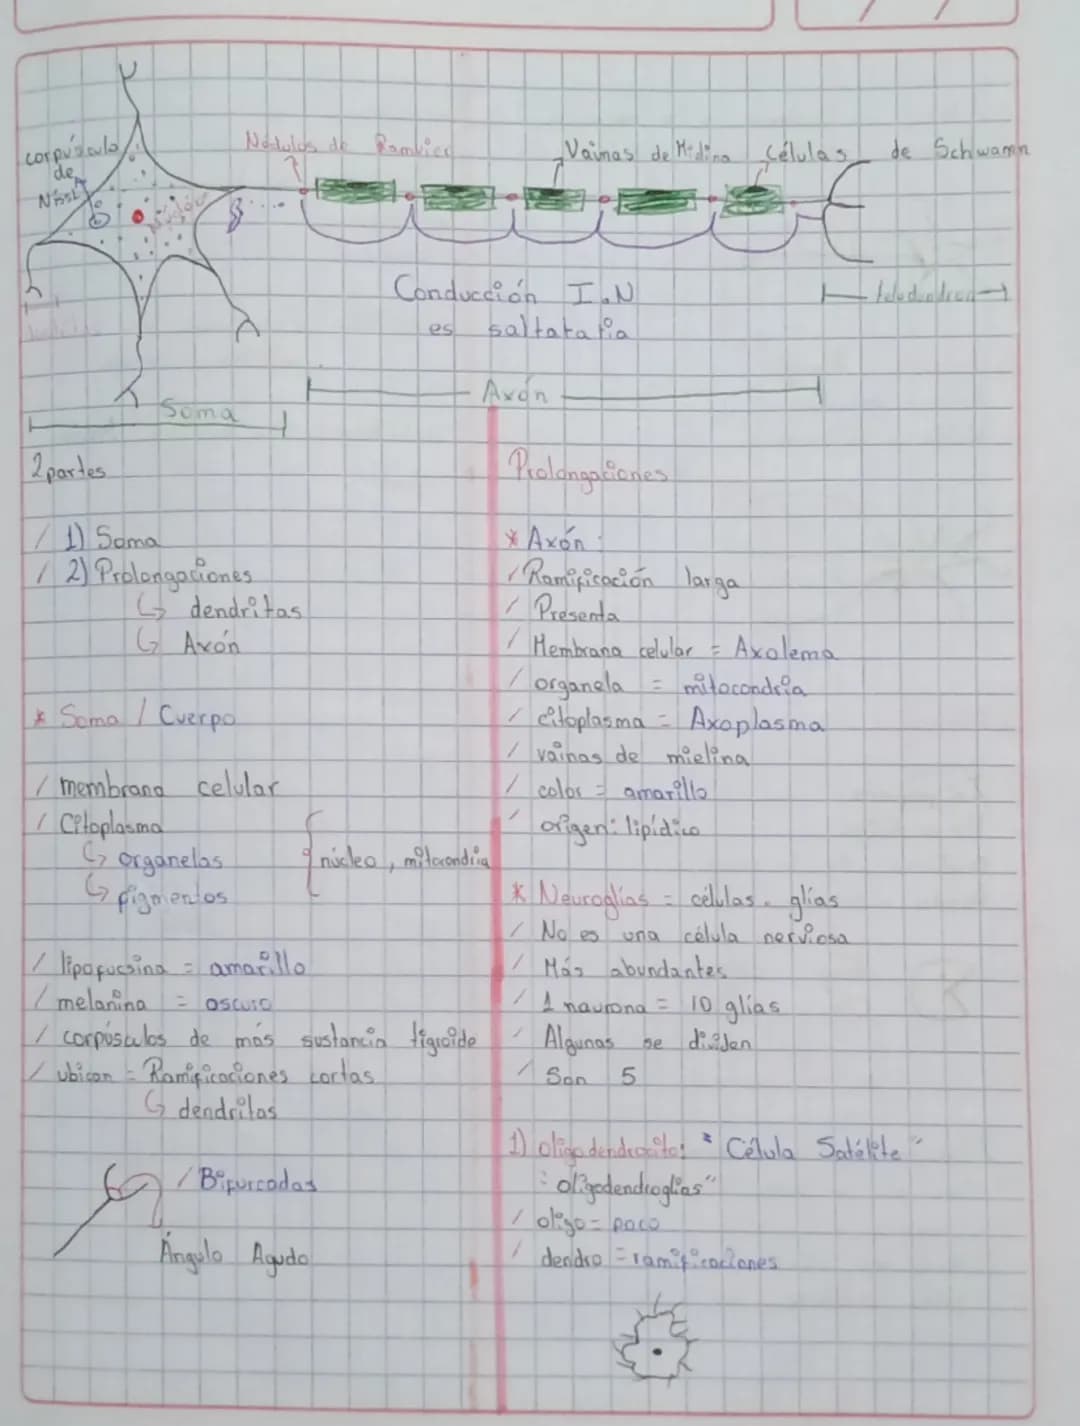 corpúsculo
de
Nissl
Nódulos de Ranvier
Vainas de Mielina
Células de Schwann
Núcleo
Conducción I.N
es saltatoria
telodendron
Axón
Soma
2 partes
/ 1) Soma
/ 2) Prolongaciones
↳ dendritas
↳ Axón
* Soma / Cuerpo
/ membrana celular
/ Citoplasma
↳ organelas { núcleo, mitocondria
↳ pigmentos
/ lipofucsina = amarillo
/ melanina = oscuro
/ corpúsculos de más sustancia tigroide
/ ubican = Ramificaciones cortas
↳ dendritas
/ Bifurcadas
Ángulo Agudo
Prolongaciones
* Axón:
/ Ramificación larga
/ Presenta
/ Membrana celular = Axolema
/ organela = mitocondria
/ citoplasma = Axoplasma
/ vainas de mielina
/ color = amarillo
/ origen: lipídico
* Neuroglías = células. glías
/ No es una célula nerviosa
/ Más abundantes
/ 1 naurona = 10 glías
/ Algunas se dividen
/ Son 5
1) oligodendrocito: "Célula Satélite"
: oligodendroglías"
/ oligo = poco
/ dendro = ramificaciones